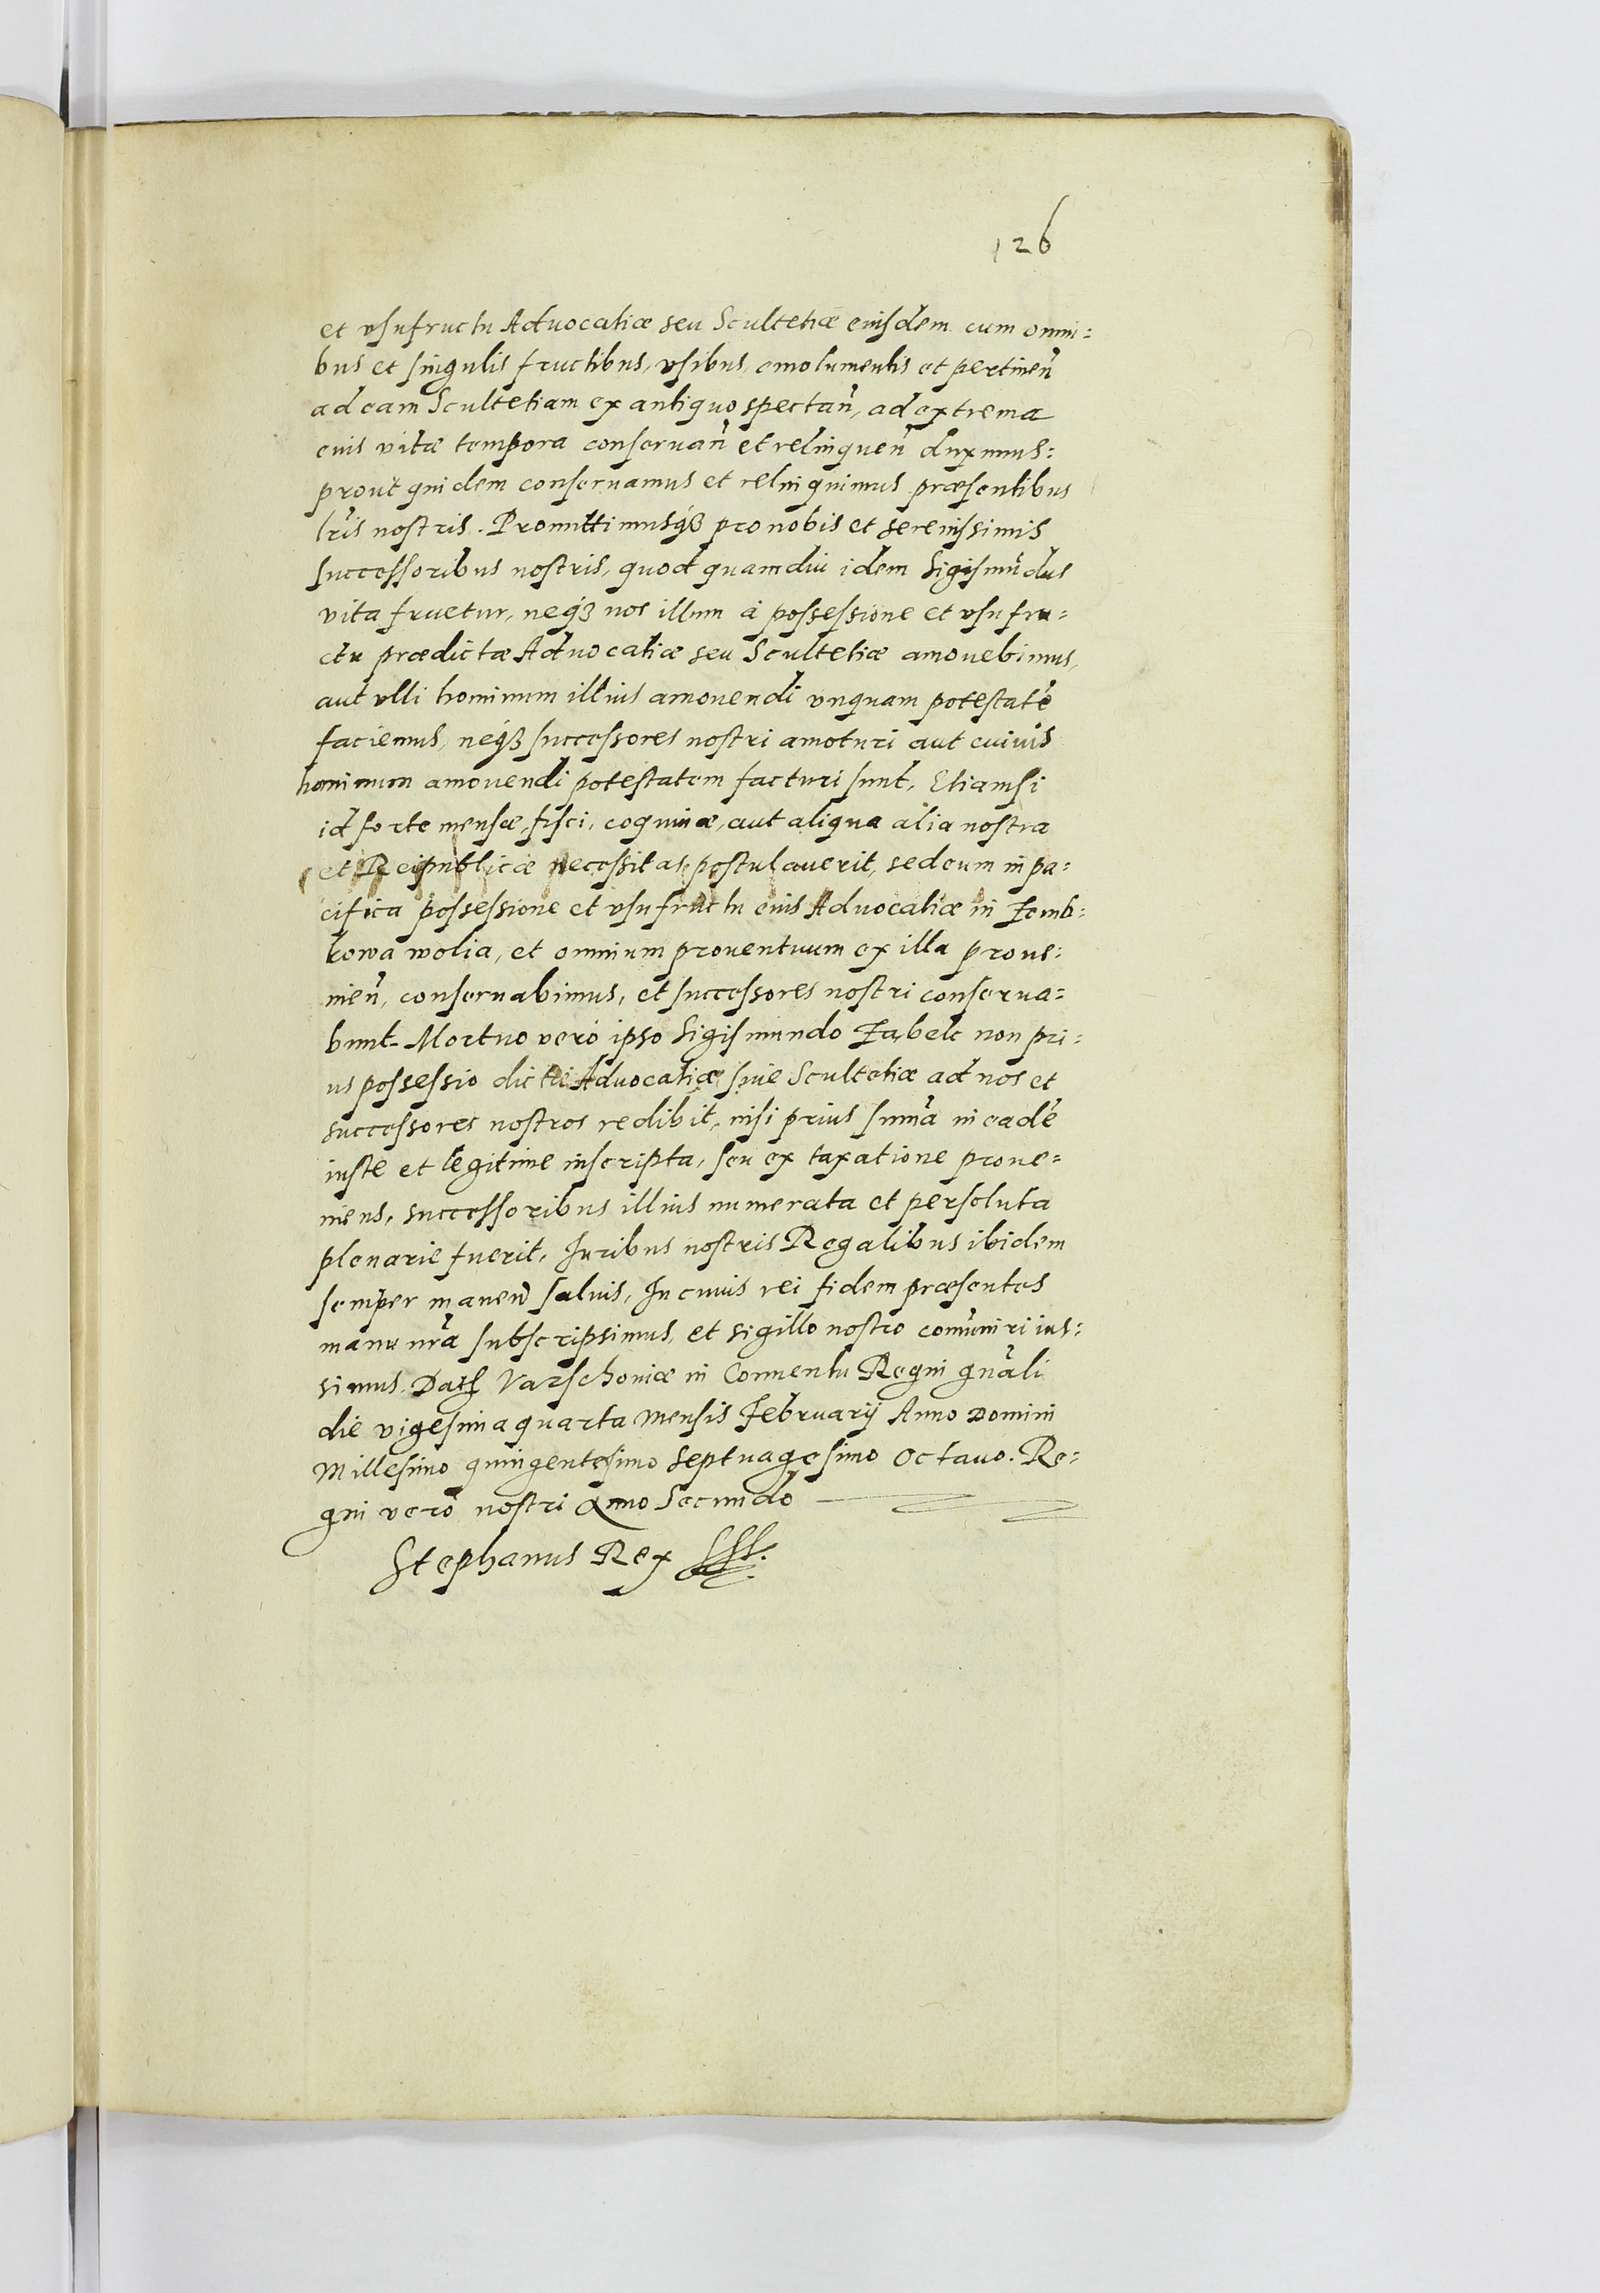 126
et vsufructu Aduocatiæ seu Scultetiæ eiusdem cum omni=
bus et singulis fructibus, vsibus, emolumentis et pertineñ
ad eam Scultetiam ex antiquo spectañ, ad extrema
eius vitæ tempora conseruañ et relinqueñ duximus:
prout quidem conseruamus et relinquimus præsentibus
lr̃is nostris. Promittimusqꝫ pro nobis et serenissimis
successoribus nostris, quod quamdiu idem Sigismũdus
vita fruetur, neqꝫ nos illum à possessione et vsufru=
ctu prædictæ Aduocatiæ seu Scultetiæ amouebimus,
aut vlli hominum illius amouendi vnquam potestatẽ
faciemus, neqꝫ successores nostri amoturi aut cuiuis
hominum amouendi potestatem facturi sunt, Etiamsi
id forte mensæ, fisci, coquinæ, aut aliqua alia nostra
et Reipublicæ necessitas postulauerit, sed eum in pa=
cifica possessione et vsufructu eius Aduocatiæ in Zemb=
kowa wolia, et omnium prouentuum ex illa proue=
nieñ, conseruabimus, et successores nostri conserua=
bunt. Mortuo verò ipso Sigismundo Zabelc non pri=
us possessio dictæ Aduocatiæ siue Scultetiæ ad nos et
successores nostros redibit, nisi prius sum̃a in eadẽ
iuste et legitime inscripta, seu ex taxatione proue=
niens, successoribus illius numerata et persoluta
plenarie fuerit, Iuribus nostris Regalibus ibidem
semper maneñ saluis, In cuius rei fidem præsentes
manu nr̃a subscripsimus, et sigillo nostro com̃uniri ius=
simus. Datꝭ Varschouiæ in Conuentu Regni gñali
die vigesima quarta Mensis Februarij Anno Domini
Millesimo quingentesimo septuagesimo Octauo. Re=
gni verò nostri Anno Secundo
Stephanus Rex SSt.